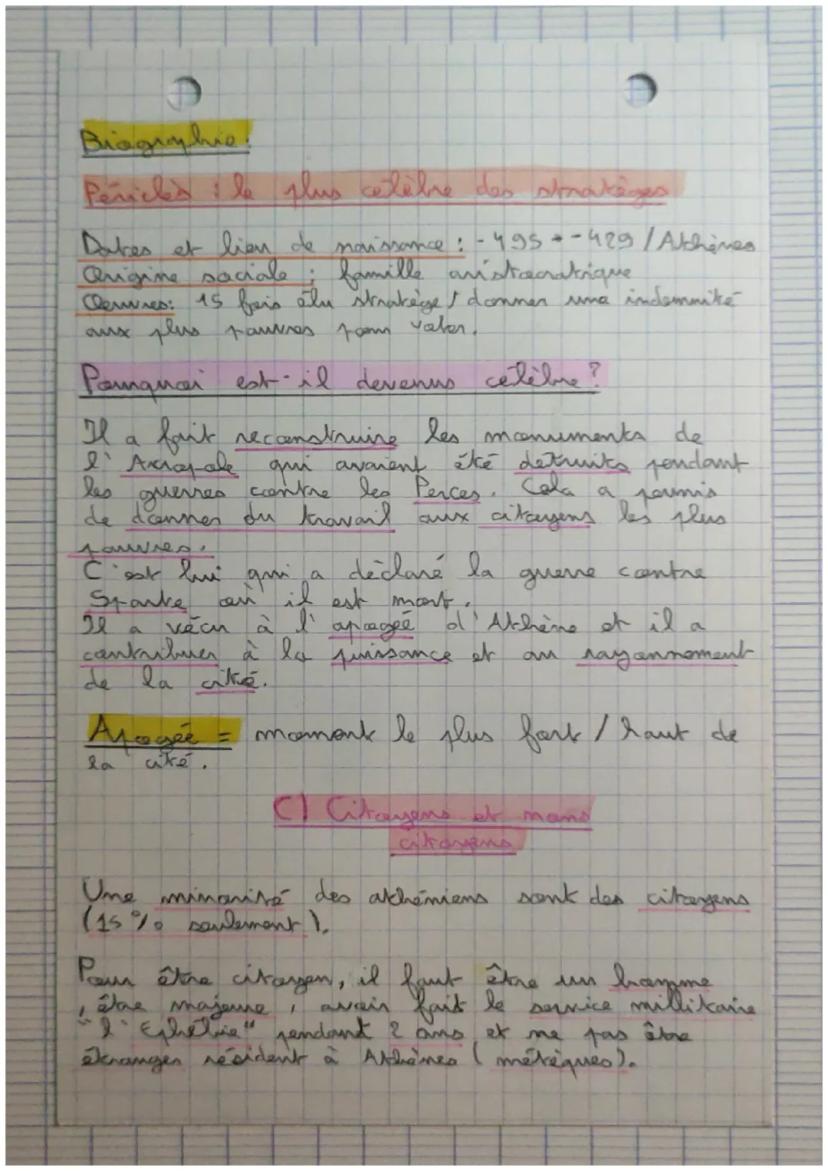 Biographie :
Périclès : le plus célèbre des stratèges
Dates et lieu de naissance : -495 → -429 / Athènes
Origine sociale : famille aristocratique
Œuvres : 15 fois élu stratège / donner une indemnité
aux plus pauvres pour voter.
Pourquoi est-il devenus célèbre ?
Il a fait reconstruire les monuments de
l'Acropole qui avaient été détruits pendant
les guerres contre les Perces. Cela a permis
de donner du travail aux citoyens les plus
pauvres.
C'est lui qui a déclaré la guerre contre
Sparte où il est mort.
Il a vécu à l'apogée d'Athène et il a
contribuer à la puissance et au rayonnement
de la cité.
Apogée = moment le plus fort / haut de
la cité.
C) Citoyens et mons
citoyens
Une minorité des athéniens sont des citoyens
(15 % seulement).
Pour être citoyen, il faut être un homme
, être majeure, avoir fait le service millitaire
"l'Ephébie" pendant 2 ans et ne pas être
étranger résident à Athènes (métèques).